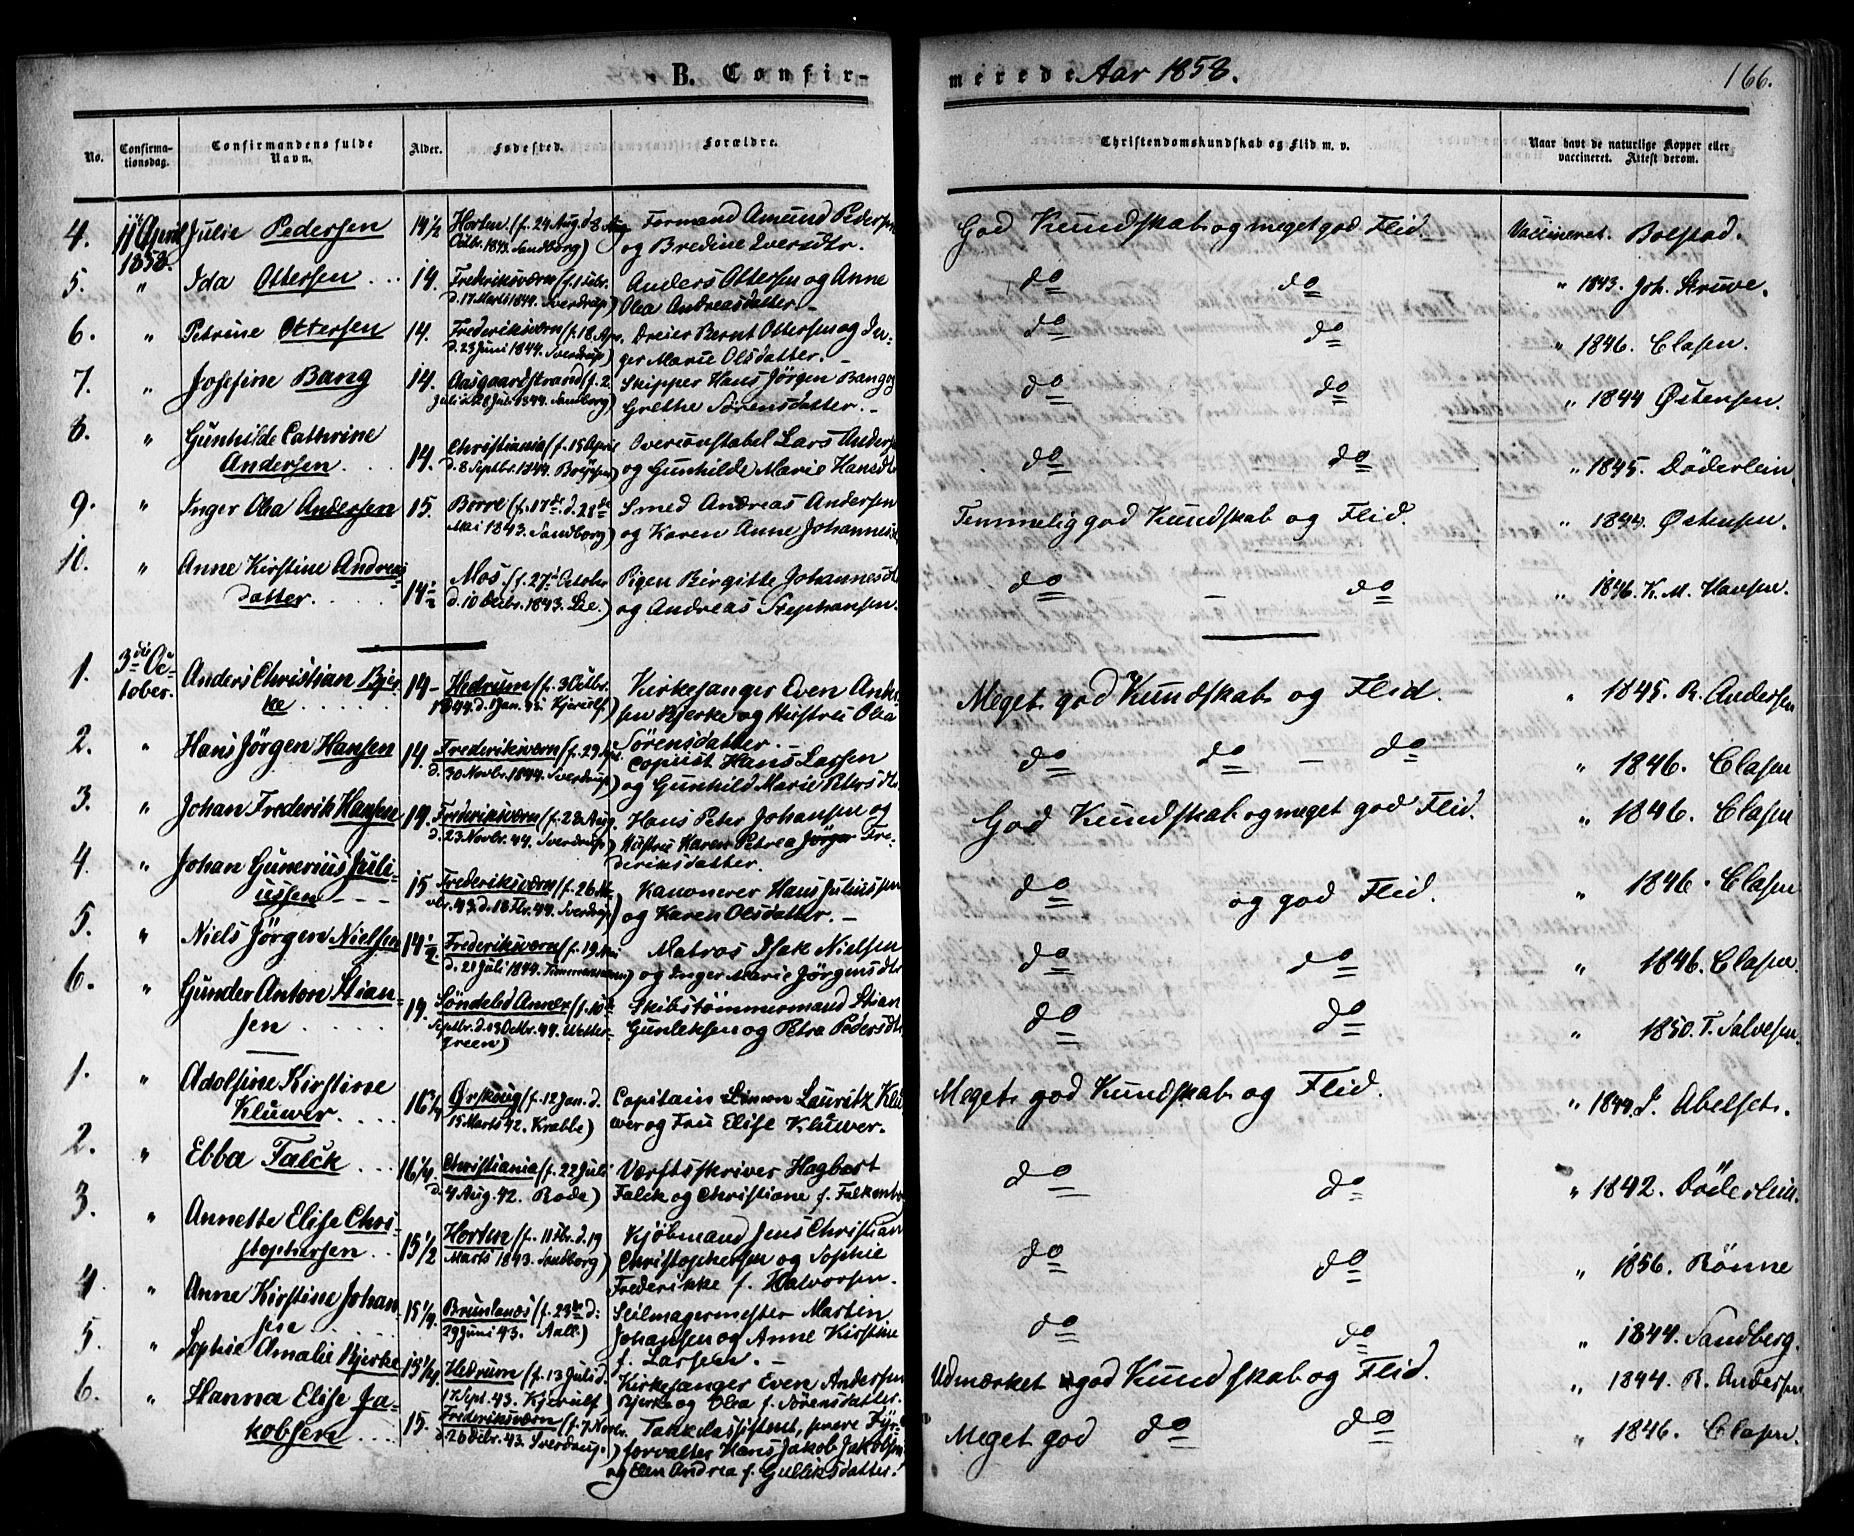 B. Confir-
merede Aar 1858.
166.
No.
Confirma-
tionsdag.
Confirmandens fulde
Navn.
Alder.
Fødested.
Forældre.
Christendomskundskab og Flid m. v.
Naar havt de naturlige Kopper eller
vaccineret. Attest derom.
4. 11te April 1858. Julie Pedersen 14 1/2 Horten (f. 24 Aug. d. 8
Octbr. 1843. Sandborg) Formand Amund Pedersen
og Bredine Iversdtr. God Kundskab og meget god Flid Vaccineret. Bolstad.
5. " Ida Ottersen 14. Frederiksværn (f. 1 Febr.
d. 17 Marts 1844. Sverdrup) Anders Ottersen og Anne
Olea Andreasdatter. do do " 1843. Joh. Struve.
6. " Petrine Ottersen 14. Frederiksværn (f. 18 Apr.
d. 23 Juni 1844. Sverdrup) Dreier Bernt Ottersen og In-
ger Marie Olsdatter. do do " 1846. Clasen.
7. " Josefine Bang 14. Aasgaardstrand (f. 2
Juli d. 28 Juli 1844. Sandborg) Skipper Hans Jörgen Bang og
Grethe Sörensdatter. do do " 1844 Østensen.
8. " Gunhilde Cathrine
Andersen 14. Christiania (f. 15 April
d. 8 Septbr. 1844. Brÿssen) Overconstabel Lars Anders
og Gunhilde Marie Hansdtr do do " 1845. Döderlein
9. " Inger Olea Andersen 15. Borre (f. 17de d. 28de
Mai 1843. Sandborg) Smed Andreas Andersen
og Karen Anne Johannesd Temmelig god Kundskab og Flid. " 1844. Østensen.
10. " Anne Kirstine Andreas
datter. 14 1/2 Mos. (f. 27de October
d. 10 Decbr. 1843. Lie.) Pigen Birgitte Johannesdtr
og Andreas Stephansen. do do " 1846. K. M. Hansen.
1. 3die Oc-
tober. Anders Christian Bjer-
ke 14 - Hedrum (f. 3 Octbr.
1844. d. 1 Jan. 45. Kjerulf) Kirkesanger Even Ander
sen Bjerke og Hustru Olea
Sörensdatter. Meget god Kundskab og Flid. " 1845. R. Andersen
2. " Hans Jörgen Hansen 14. Frederiksværn (f. 29
d. 30 Novbr. 1844. Sverdrup) Copiist Hans Larsen
og Gunhild Marie Petersdtr do do - do " 1846. Clasen
3. " Johan Frederik Hansen 14. Frederiksværn (f. 28 Aug.
d. 23 Novbr. 44. Sverdrup) Hans Peter Johansen og
Hustru Karen Petrea Jörgen Fre-
deriksdatter. God Kundskab og meget god Flid. " 1846. Clasen
4. " Johan Gunerius Juli-
ussen 15 Frederiksværn (f. 26
vbr. 43. d. 18 Fbr. 44. Sverdrup) Kanonerer Hans Juliussen
og Karen Olsdatter. do og god Flid. " 1846. Clasen
5. " Niels Jörgen Nielsen 14 1/2 Frederiksværn (f. 19 Mai
d. 21 Juli 1844. Timmermann) Matros Isak Nielsen
og Inger Marie Jörgensdtr do do " 1846. Clasen.
6. " Gunder Anton Stian-
sen 14. Söndeled Annex (f. 10de
Septbr. d. 13 Octbr. 44. Wetter-
green) Skibstømmermand Stian
Gunleksen og Petra Pedersdtr do do " 1850. T. Salvesen.
1. " Adolfine Kirstine
Klüwer 16 3/4 Ørskoug (f. 12 Jan. d.
15 Marts 42. Krabbe) Capitain Simon Lauritz Klü
wer og Fru Elise Klüwer. Meget god Kundskab og Flid. " 1844. J. Abelset.
2. " Ebba Falck 16 1/4 Christiania (f. 22 Juli
d. 4 Aug. 42. Rode) Værftsskriver Hagbart
Falck og Christiane f. Falkenb do do " 1842. Döderlein.
3. " Annette Elise Chri-
stophersen 15 1/2 Horten (f. 11 Fbr. d. 19
Marts 1843. Sandborg) Kjöbmand Jens Christian
Christophersen og Sophie
Frederikke f. Halvorsen. do do " 1856. Rönne
4. " Anne Kirstine Johan-
sen 15 1/4 Brunlanæs (f. 23de d:
29 Juni 43. Aall.) Seilmagermester Martin
Johansen og Anne Kirstine
f. Larsen. do do " 1844. Sandberg.
5. " Sophie Amalie Bjerke 15 1/4 Hedrum (f. 13 Juli d.
17 Sept. 43. Kjerulf) Kirkesanger Even Andersen
Bjerke og Olea f. Sörensdatter. Udmærket god Kundskab og Flid. " 1844. R. Andersen
6. " Hanna Elise Ja-
kobsen 15. Frederiksværn (f. 7 Novbr.
d. 26 Decbr. 43. Sverdrup.) Takkelassistent, forvalter Hans Jakob Jakobsen
og Elen Andrea f. Gulliksdatter. Meget god do do " 1846. Clasen.